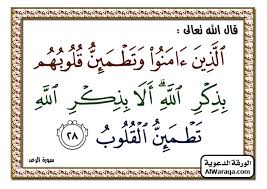 قال الله تعالى :
الَّذِينَ ءَامَنُوا۟ وَتَطْمَئِنُّ قُلُوبُهُم
بِذِكْرِ اللَّهِ ۗ أَلَا بِذِكْرِ اللَّهِ
تَطْمَئِنُّ الْقُلُوبُ ﴿٢٨﴾
سورة الرعد
الورقة الدعوية
AlWaraqa.com